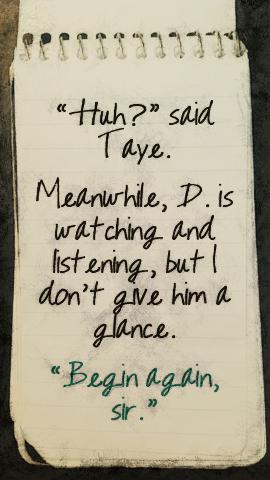 “Huh?” said
Taye.
Meanwhile, D. is
watching and
listening, but I
don't give him a
glance.
“Begin again,
sir.”